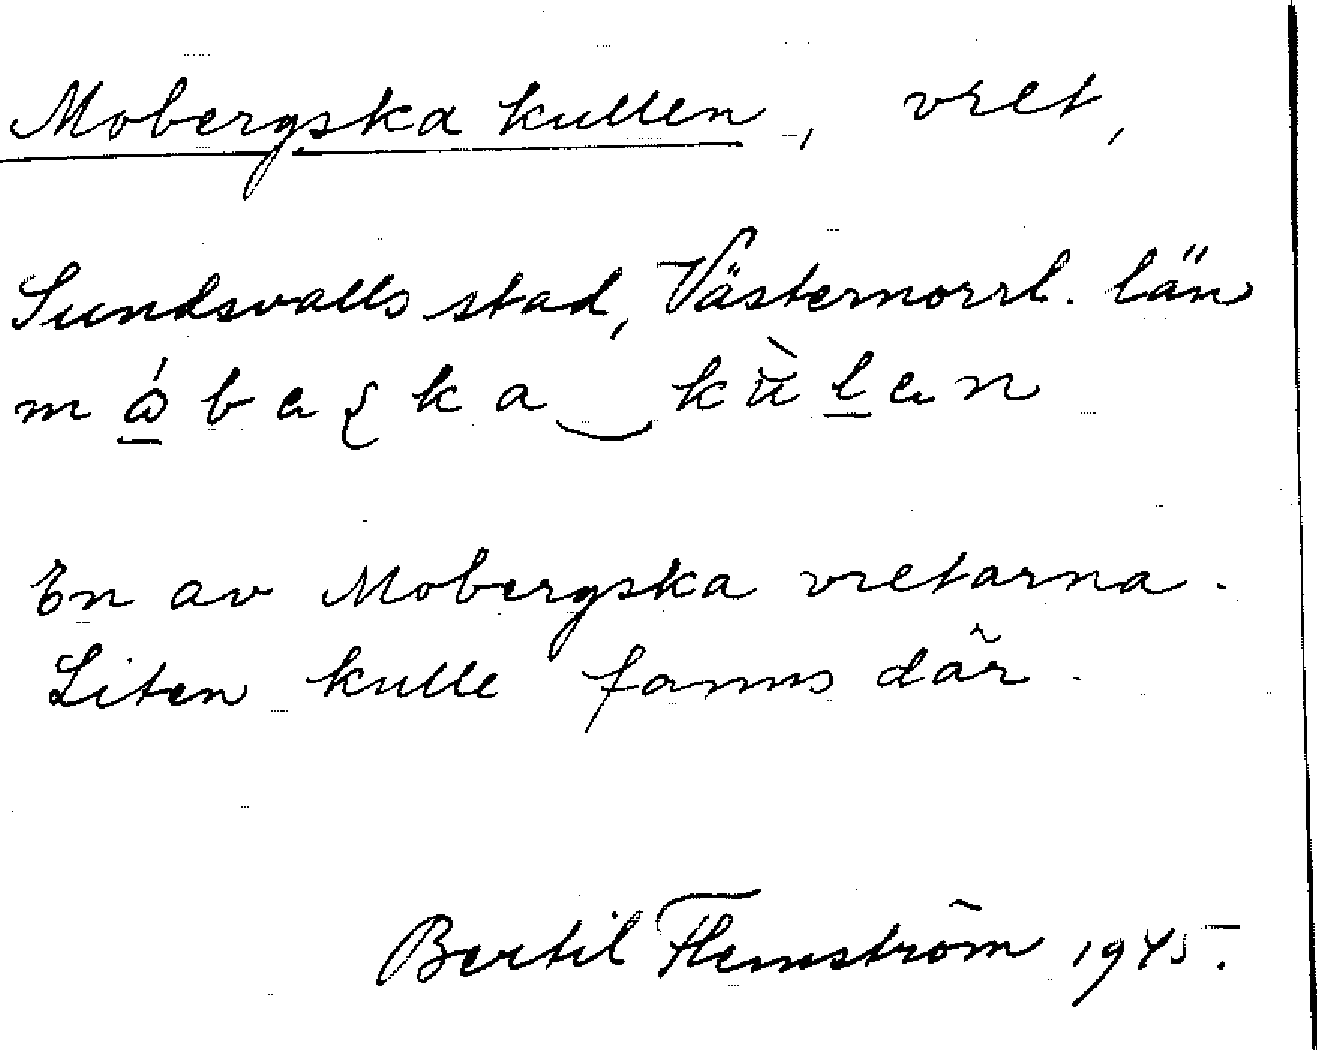 Mobergska kullen, vret,
Sundsvalls stad, Västernorrl. län
En av Mobergska vretarna.
Liten kulle fanns där.
Bertil Flemström 1945.